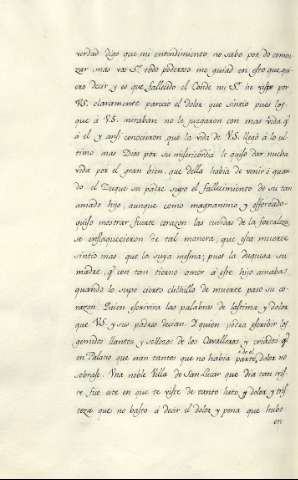 verdad digo que mi entendimiento no sabe por do comen
zar, mas vos Sr. todo poderoso me guiad en esto que qui
ero decir y es que fallecido el Conde mi Sr. in visto por
VS. claramente parecio el dolor que sintio pues los
que á VS. miraban no le juzgaron con mas vida q̃
á el y assi conocieron que la vida de VS. llegó á lo ul
timo mas Dios por su misericordia le quiso dar nueba
vida por el gran bien, que della habia de venir: quan
do el Duque su padre supo el fallecimiento de su tan
amado hijo, aunque como magnanimo y esforzado
quiso mostrar fuerte corazon las cuerdas de la fortaleza
se enflaquecieron de tal manera, que esta muerte
sintio mas que la suya mesma; pues la duquesa su
madre, q̃ con tan tierno amor á este hijo amaba,
quando lo supo cierto cuchillo de muerte paso su co
razon. Quien escrivira las palabras de lastima, y dolor
que VS. y sus padres decian. Y quien podra escribir los
gemidos llantos, y sollozos de los Cavalleros, y criados q̃
en Palacio que eran tantos que no habia parte do el dolor no
sobrase. Una noble Villa de San-Lucar que dia tan tris
te fue este en que te viste de tanto luto y dolor, y tris
teza que no basto á decir el dolor y pena que hubo
en